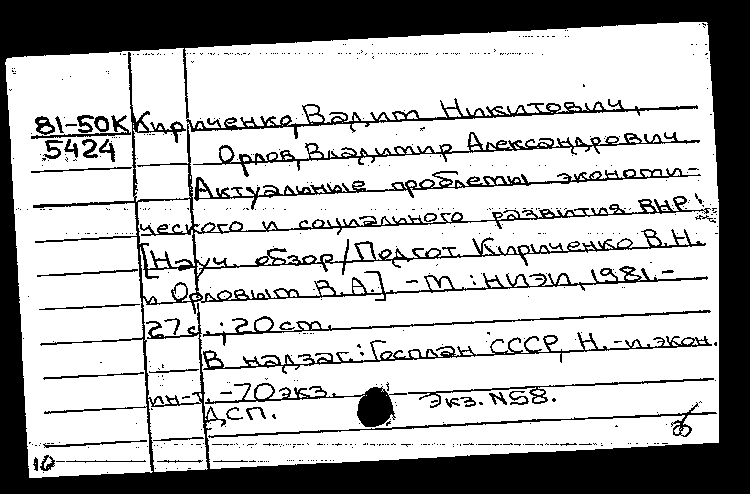 81-50К Кириченко, Вадим Никитович,
5424 Орлов, Владимир Александрович
Актуальные проблемы экономи-
ческого и социального развития ВНР:
[Науч. обзор/Подгот. Кириченко В.Н.
и Орловым В.А.]. - М.: НИЭИ, 1981. -
27 с.; 20 см.
В надзаг.: Госплан СССР, Н.-и. экон.
ин-т. - 70 экз.
ДСП. Экз. N58.
10